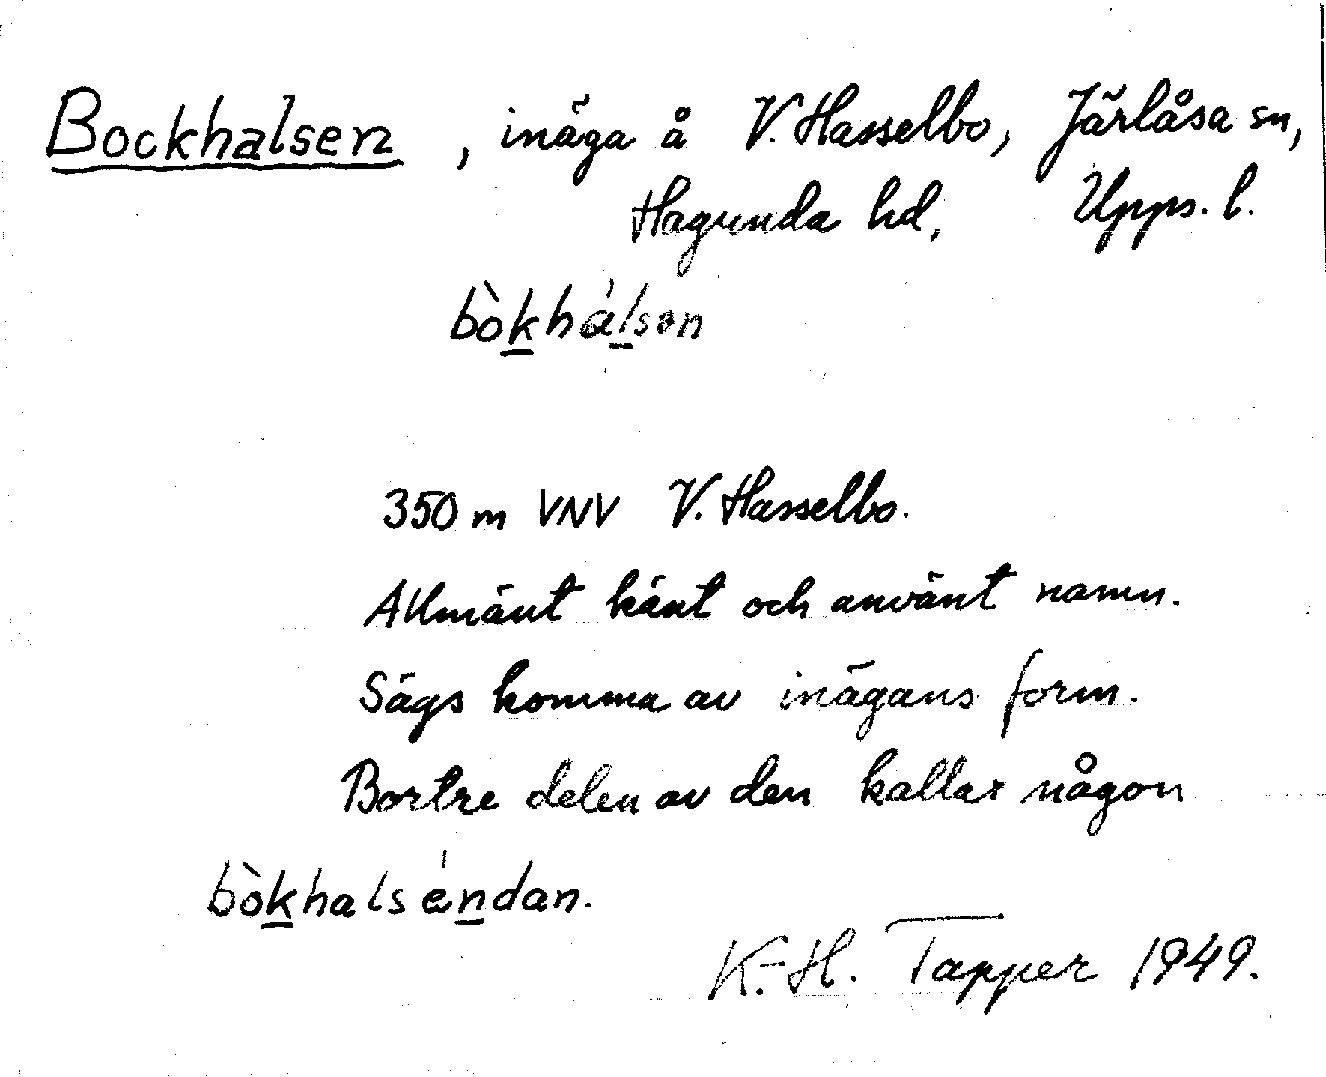 Bockhalsen, inäga å V. Hasselbo, Järlåsa sn,
Hagunda hd, Upps. l.
bòkhálsən
350 m VNV V. Hasselbo.
Allmänt känt och använt namn.
Sägs komma av inägans form.
Bortre delen av den kallar någon
bòkhalséndan.
K.-H. Tapper 1949.